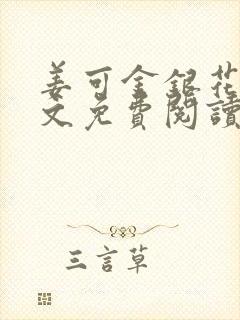 姜可金銀花
文免費閱讀
三言草